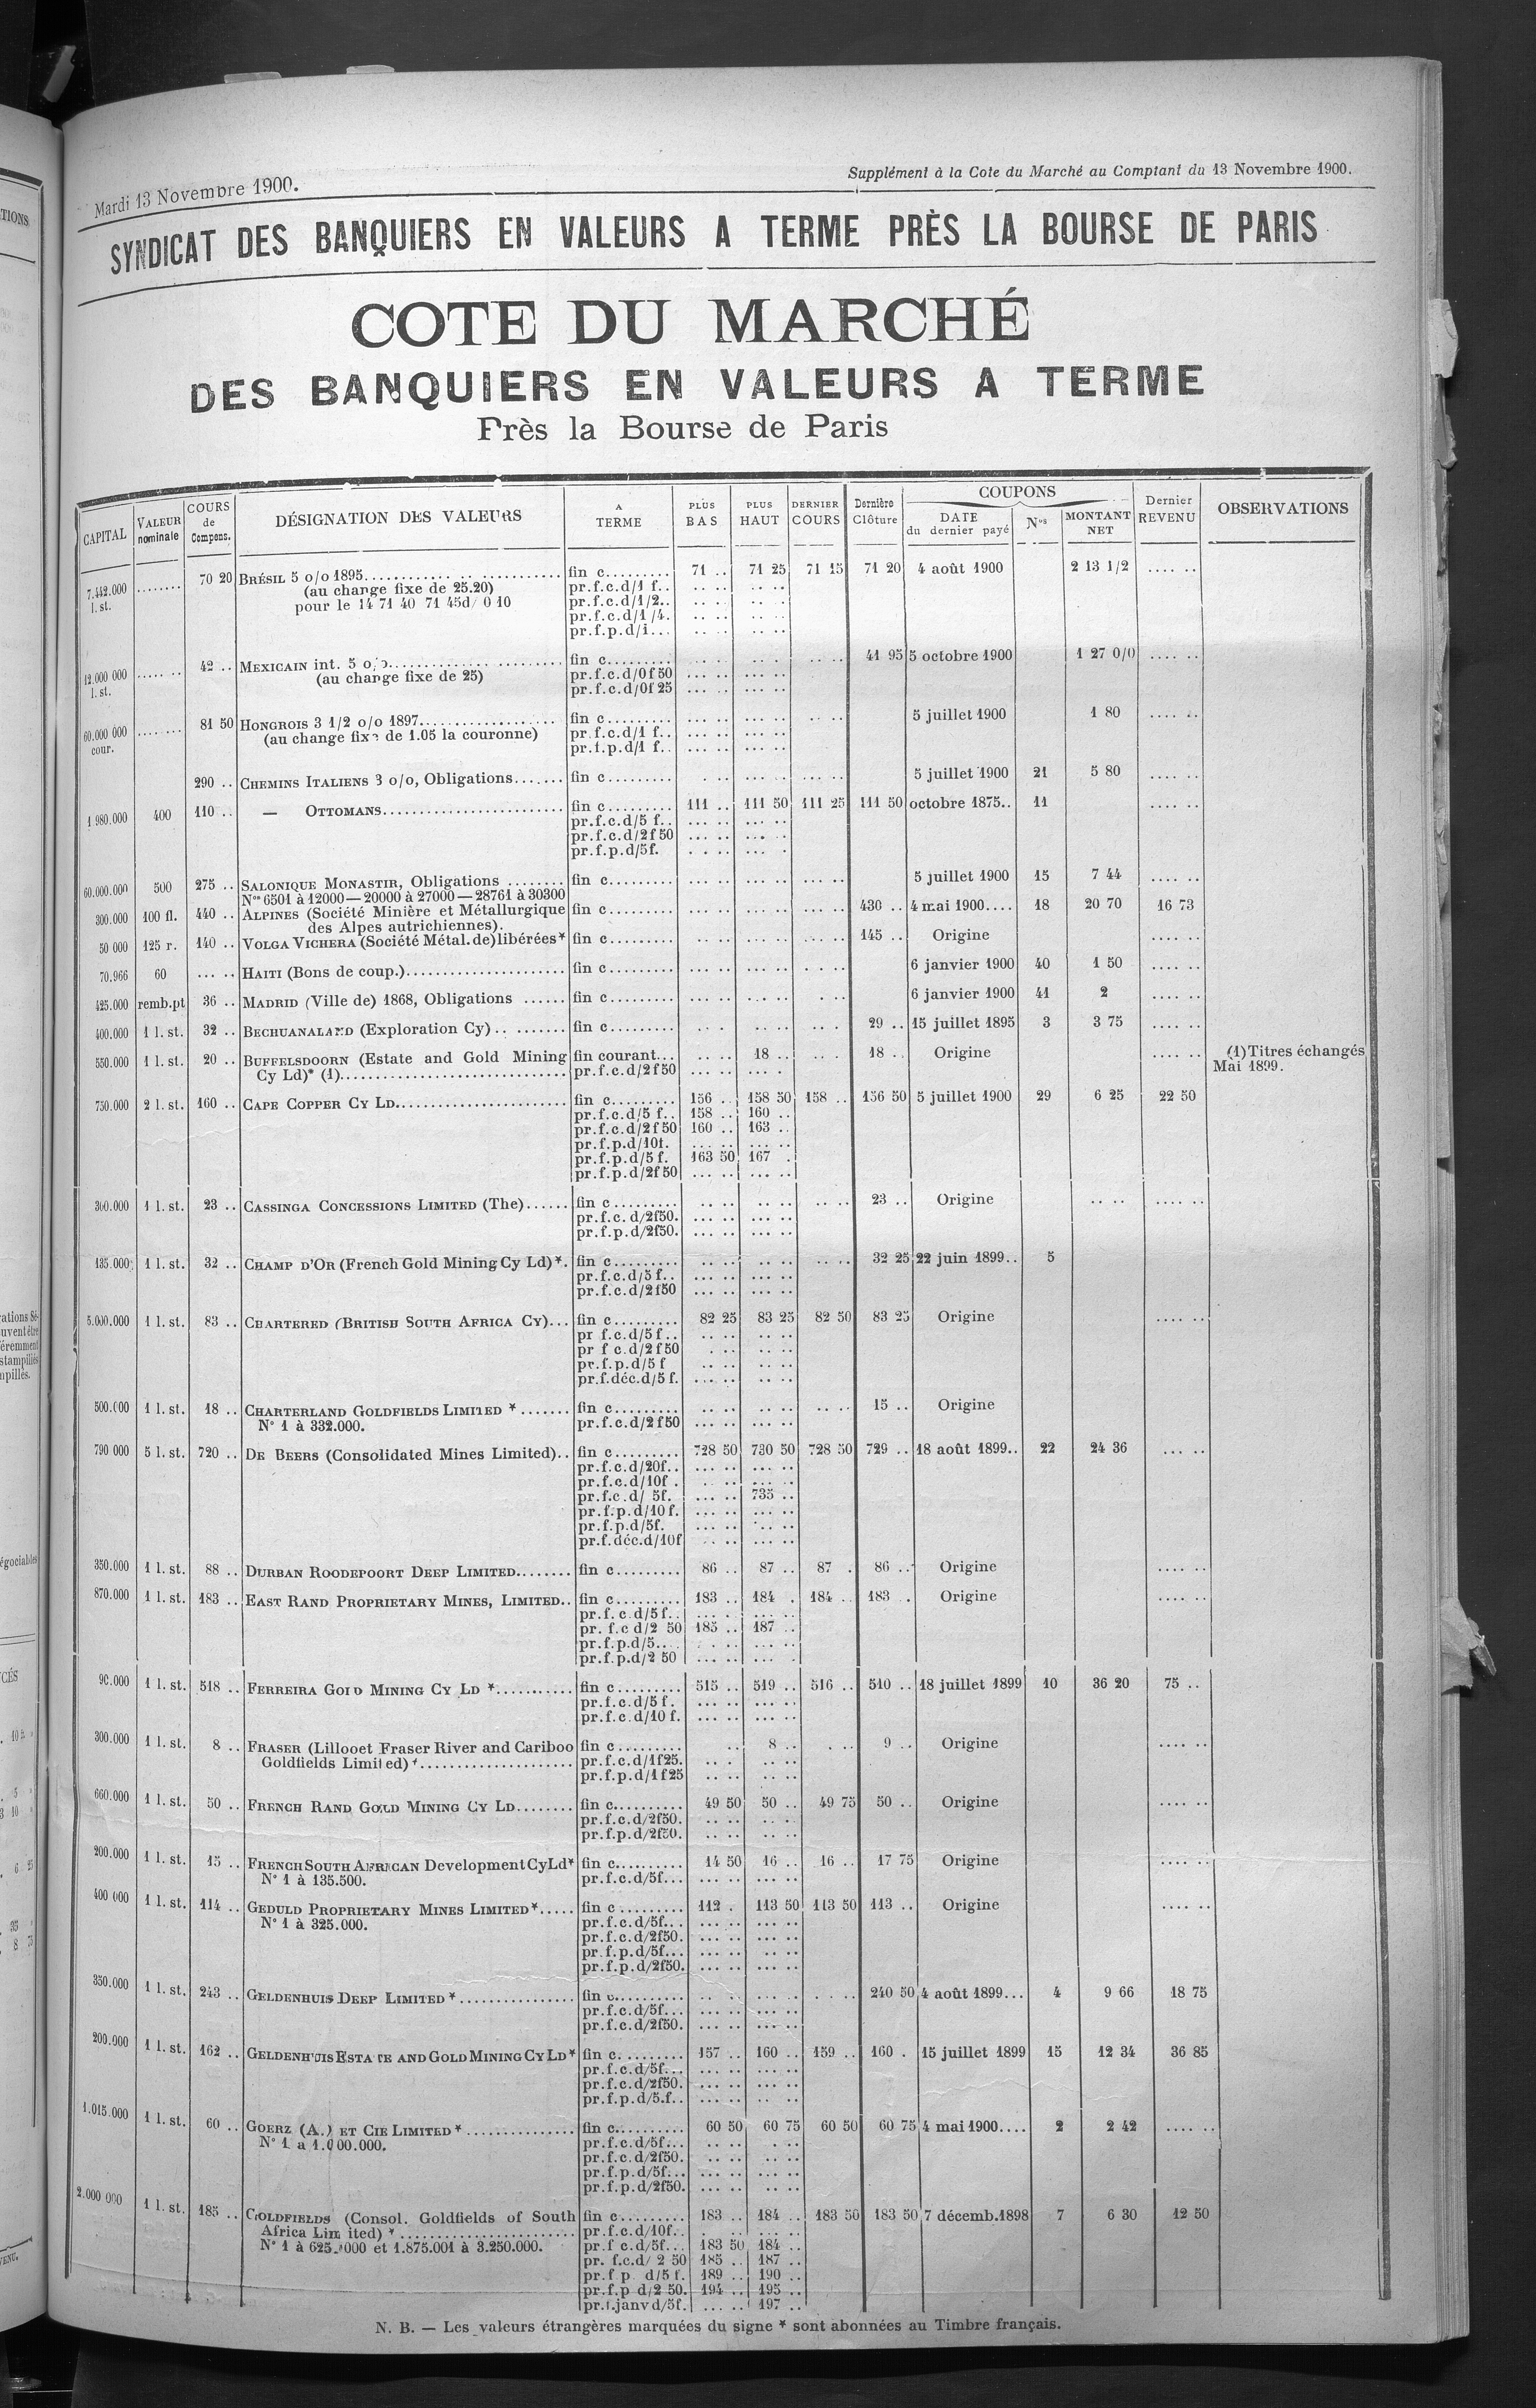 Mardi 13 Novembre 1900.
Supplément à la Cote du Marché au Comptant du 13 Novembre 1900.
SYNDICAT DES BANQUIERS EN VALEURS A TERME PRÈS LA BOURSE DE PARIS
COTE DU MARCHÉ
DES BANQUIERS EN VALEURS A TERME
Près la Bourse de Paris
CAPITAL VALEUR nominale COURS de Compens. DÉSIGNATION DES VALEURS A TERME PLUS BAS PLUS HAUT DERNIER COURS Dernière Clôture COUPONS DATE du dernier payé Nos MONTANT NET Dernier REVENU OBSERVATIONS
7.442.000 l. st. ........ 70 20 BRÉSIL 5 o/o 1895.......... fin c......... 71 .. 71 25 71 15 71 20 4 août 1900 2 13 1/2 .... ..
(au change fixe de 25.20) pr.f.c.d/1 f..
pour le 14 71 40 71 45d/ 0 10 pr.f.c.d/1/2..
pr.f.c.d/1/4.
pr.f.p.d/i...
12.000 000 l. st. ........ 42 .. MEXICAIN int. 5 o/o.......... fin c......... 41 95 5 octobre 1900 1 27 0/0 .... ..
(au change fixe de 25) pr.f.c.d/0f50
pr.f.c.d/0f25
60.000 000 cour. ........ 81 50 HONGROIS 3 1/2 o/o 1897.......... fin c......... 5 juillet 1900 1 80 .... ..
(au change fixe de 1.05 la couronne) pr.f.c.d/1 f..
pr.f.p.d/1 f..
290 .. CHEMINS ITALIENS 3 o/o, Obligations....... fin c......... 5 juillet 1900 21 5 80 .... ..
1.980.000 400 110 .. — OTTOMANS.......... fin c......... 111 .. 111 50 111 25 111 50 octobre 1875.. 11 .... ..
pr.f.c.d/5 f..
pr.f.c.d/2f50
pr.f.p.d/5f.
60.000.000 500 275 .. SALONIQUE MONASTIR, Obligations ........ fin c......... 5 juillet 1900 15 7 44 .... ..
Nos 6501 à 12000—20000 à 27000—28761 à 30300
300.000 100 fl. 440 .. ALPINES (Société Minière et Métallurgique fin c......... 430 .. 4 mai 1900.... 18 20 70 16 73
des Alpes autrichiennes).
50 000 125 r. 140 .. VOLGA VICHERA (Société Métal. de) libérées* fin c......... 145 .. Origine .... ..
70.966 60 ... .. HAITI (Bons de coup.).......... fin c......... 6 janvier 1900 40 1 50 .... ..
425.000 remb.pt 36 .. MADRID (Ville de) 1868, Obligations ...... fin c......... 6 janvier 1900 41 2 .... ..
400.000 1 l. st. 32 .. BECHUANALAND (Exploration Cy).. ....... fin c......... 29 .. 15 juillet 1895 3 3 75 .... ..
550.000 1 l. st. 20 .. BUFFELSDOORN (Estate and Gold Mining fin courant... 18 .. 18 .. Origine .... .. (1) Titres échangés
Cy Ld)* (1).......... pr.f.c.d/2f50 Mai 1899.
750.000 2 l. st. 160 .. CAPE COPPER CY LD.......... fin c......... 156 .. 158 50 158 .. 156 50 5 juillet 1900 29 6 25 22 50
pr.f.c.d/5 f.. 158 .. 160 ..
pr.f.c.d/2f50 160 .. 163 ..
pr.f.p.d/10f.
pr.f.p.d/5 f. 163 50 167 .
pr.f.p.d/2f50
300.000 1 l. st. 23 .. CASSINGA CONCESSIONS LIMITED (The)...... fin c......... 23 .. Origine .. .. .... ..
pr.f.c. d/2f50.
pr.f.p.d/2f50.
135.000 1 l. st. 32 .. CHAMP D'OR (French Gold Mining Cy Ld)*. fin c......... 32 25 22 juin 1899.. 5
pr.f.c.d/5 f..
pr.f.c.d/2f50
5.000.000 1 l. st. 83 .. CHARTERED (BRITISH SOUTH AFRICA CY)... fin c......... 82 25 83 25 82 50 83 25 Origine .... ..
pr f.c.d/5 f..
pr f c.d/2f50
pr.f.p.d/5 f
pr.f.déc.d/5 f.
500.000 1 l. st. 18 .. CHARTERLAND GOLDFIELDS LIMITED *....... fin c......... 15 .. Origine
N° 1 à 332.000. pr.f.c.d/2f50
790 000 5 l. st. 720 .. DE BEERS (Consolidated Mines Limited).. fin c......... 728 50 730 50 728 50 729 .. 18 août 1899.. 22 24 36 ... ..
pr.f.c.d/20f..
pr.f.c.d/10f .
pr.f.c.d/ 5f. 735 ..
pr.f.p.d/10f.
pr.f.p.d/5f.
pr.f.déc.d/10f
350.000 1 l. st. 88 .. DURBAN ROODEPOORT DEEP LIMITED........ fin c......... 86 .. 87 .. 87 . 86 .. Origine .... ..
870.000 1 l. st. 183 .. EAST RAND PROPRIETARY MINES, LIMITED.. fin c......... 183 .. 184 . 184 .. 183 . Origine .... ..
pr.f.c.d/5 f..
pr. f.c d/2 50 185 .. 187 ..
pr.f.p.d/5...
pr.f.p.d/2 50
90.000 1 l. st. 518 .. FERREIRA GOLD MINING CY LD *.......... fin c......... 515 .. 519 .. 516 .. 510 .. 18 juillet 1899 10 36 20 75 ..
pr.f.c.d/5 f.
pr.f.c.d/10 f.
300.000 1 l. st. 8 .. FRASER (Lillooet Fraser River and Cariboo fin c......... 8 .. 9 .. Origine .... ..
Goldfields Limited)*.......... pr.f.c.d/1f25.
pr.f.p.d/1f25
660.000 1 l. st. 50 .. FRENCH RAND GOLD MINING CY LD........ fin c......... 49 50 50 .. 49 75 50 .. Origine .... ..
pr.f.c.d/2f50.
pr.f.p.d/2f50.
200.000 1 l. st. 15 .. FRENCH SOUTH AFRICAN Development Cy Ld* fin c......... 14 50 16 .. 16 .. 17 75 Origine .... ..
N° 1 à 135.500. pr.f.c.d/5f...
400 000 1 l. st. 114 .. GEDULD PROPRIETARY MINES LIMITED*..... fin c......... 112 . 113 50 113 50 113 .. Origine .... ..
N° 1 à 325.000. pr.f.c.d/5f...
pr.f.c.d/2f50.
pr.f.p.d/5f...
pr.f.p.d/2f50.
350.000 1 l. st. 243 .. GELDENHUIS DEEP LIMITED *.......... fin c......... 240 50 4 août 1899... 4 9 66 18 75
pr.f.c.d/5f...
pr.f.c.d/2f50.
200.000 1 l. st. 162 .. GELDENHUIS ESTATE AND GOLD MINING CY LD* fin c......... 157 .. 160 .. 159 .. 160 . 15 juillet 1899 15 12 34 36 85
pr.f.c.d/5f...
pr.f.c.d/2f50.
pr.f.p.d/5.f..
1.015.000 1 l. st. 60 .. GOERZ (A.) ET CIE LIMITED *.......... fin c......... 60 50 60 75 60 50 60 75 4 mai 1900.... 2 2 42 .... ..
N° 1 a 1.000.000. pr.f.c.d/5f...
pr.f.c.d/2f50.
pr.f.p.d/5f...
pr.f.p.d/2f50.
2.000 000 1 l. st. 185 .. GOLDFIELDS (Consol. Goldfields of South fin c......... 183 .. 184 .. 183 50 183 50 7 décemb.1898 7 6 30 12 50
Africa Limited) *.......... pr.f.c.d/10f..
N° 1 à 625.000 et 1.875.001 à 3.250.000. pr.f c.d/5f... 183 50 184 ..
pr. f.c.d/ 2 50 185 .. 187 ..
pr.f p d/5 f. 189 .. 190 ..
pr.f.p d/2 50. 194 .. 195 ..
pr.f.janv d/5f. ... .. 197 ..
N. B. — Les valeurs étrangères marquées du signe * sont abonnées au Timbre français.